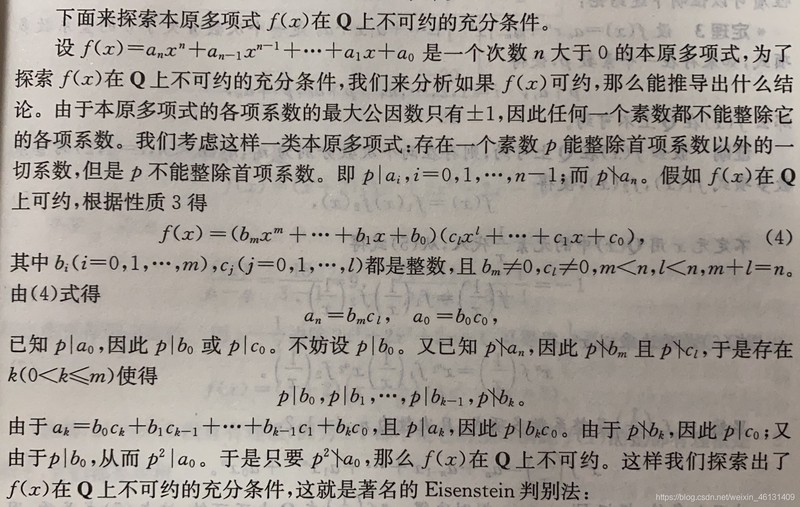 下面来探索本原多项式 f(x)在 Q 上不可约的充分条件。
设 f(x)=aₙxⁿ+aₙ₋₁xⁿ⁻¹+⋯+a₁x+a₀ 是一个次数 n 大于 0 的本原多项式,为了
探索 f(x)在 Q 上不可约的充分条件,我们来分析如果 f(x)可约,那么能推导出什么结
论。由于本原多项式的各项系数的最大公因数只有±1,因此任何一个素数都不能整除它
的各项系数。我们考虑这样一类本原多项式:存在一个素数 p 能整除首项系数以外的一
切系数,但是 p 不能整除首项系数。即 p|aᵢ,i=0,1,⋯,n−1;而 p∤aₙ。假如 f(x)在 Q
上可约,根据性质 3 得
f(x)=(bₘxᵐ+⋯+b₁x+b₀)(cₗxˡ+⋯+c₁x+c₀), (4)
其中 bᵢ(i=0,1,⋯,m),cⱼ(j=0,1,⋯,l)都是整数,且 bₘ≠0,cₗ≠0,m<n,l<n,m+l=n。
由(4)式得
aₙ=bₘcₗ, a₀=b₀c₀,
已知 p|a₀,因此 p|b₀ 或 p|c₀。不妨设 p|b₀。又已知 p∤aₙ,因此 p∤bₘ 且 p∤cₗ,于是存在
k(0<k≤m)使得
p|b₀,p|b₁,⋯,p|bₖ₋₁,p∤bₖ。
由于 aₖ=b₀cₖ+b₁cₖ₋₁+⋯+bₖ₋₁c₁+bₖc₀,且 p|aₖ,因此 p|bₖc₀。由于 p∤bₖ,因此 p|c₀;又
由于 p|b₀,从而 p²|a₀。于是只要 p²∤a₀,那么 f(x)在 Q 上不可约。这样我们探索出了
f(x)在 Q 上不可约的充分条件,这就是著名的 Eisenstein 判别法:
https://blog.csdn.net/weixin_46131409